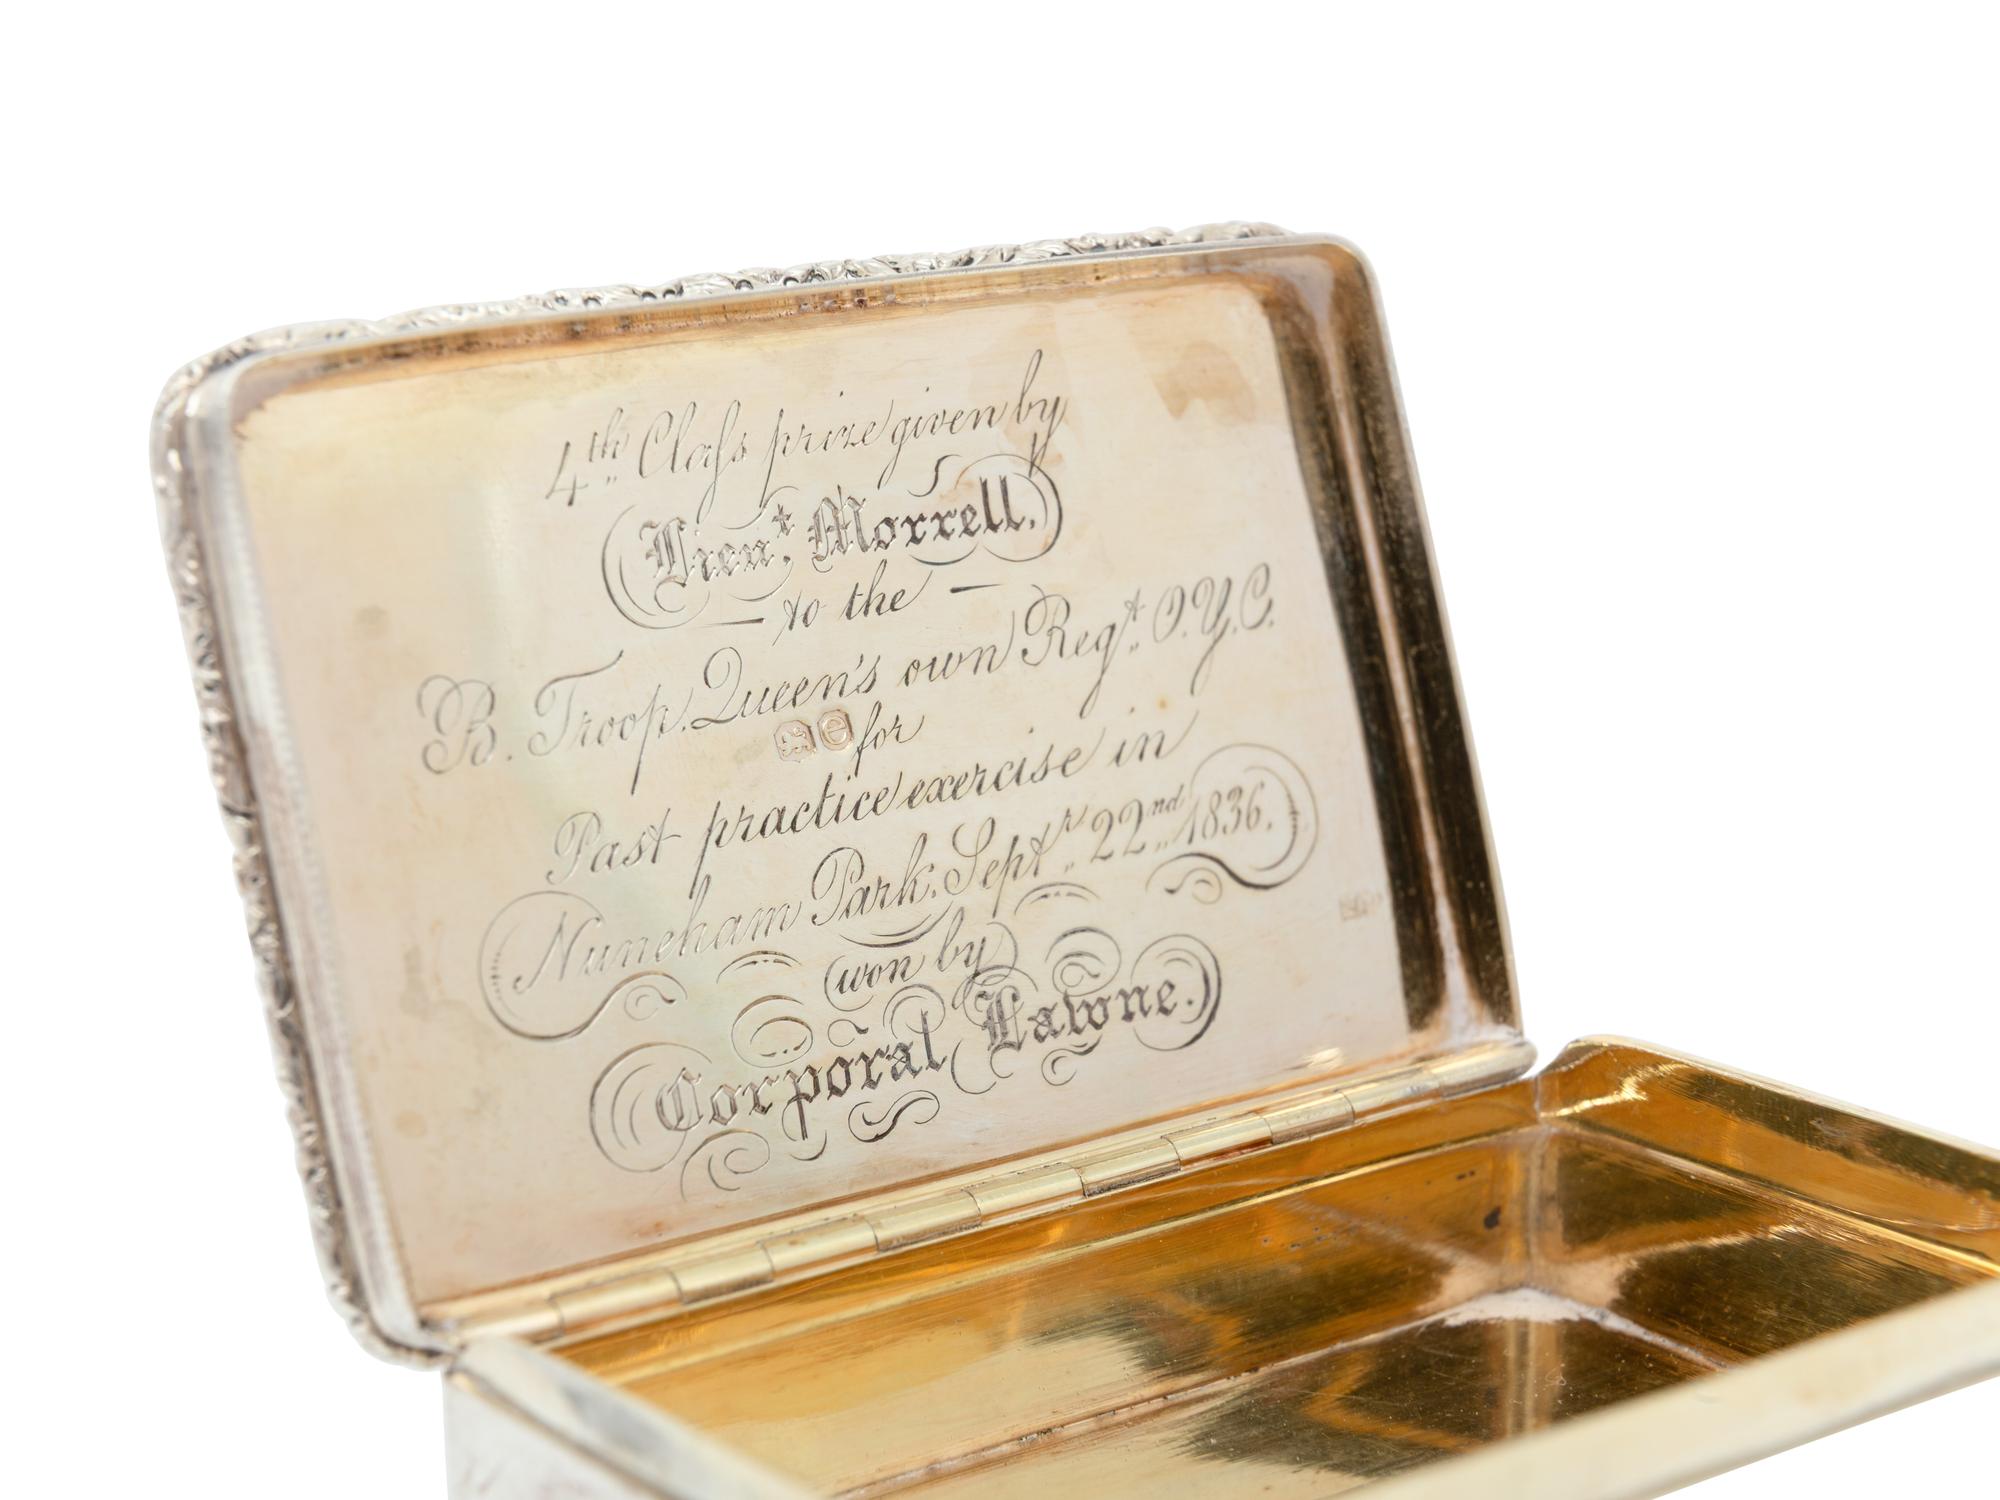 4th Claſs prize given by
Lieut. Morrell.
to the
B. Troop. Queen's own Regt. O.Y.C.
for
Past practice exercise in
Nuneham Park. Septr. 22nd 1836.
won by
Corporal Lawne.
e